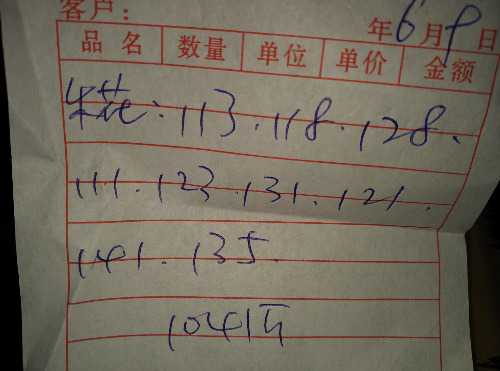 客户：
年6月9日
品名 数量 单位 单价 金额
花：113.118.128.
111.123.131.121.
141.135.
1041斤